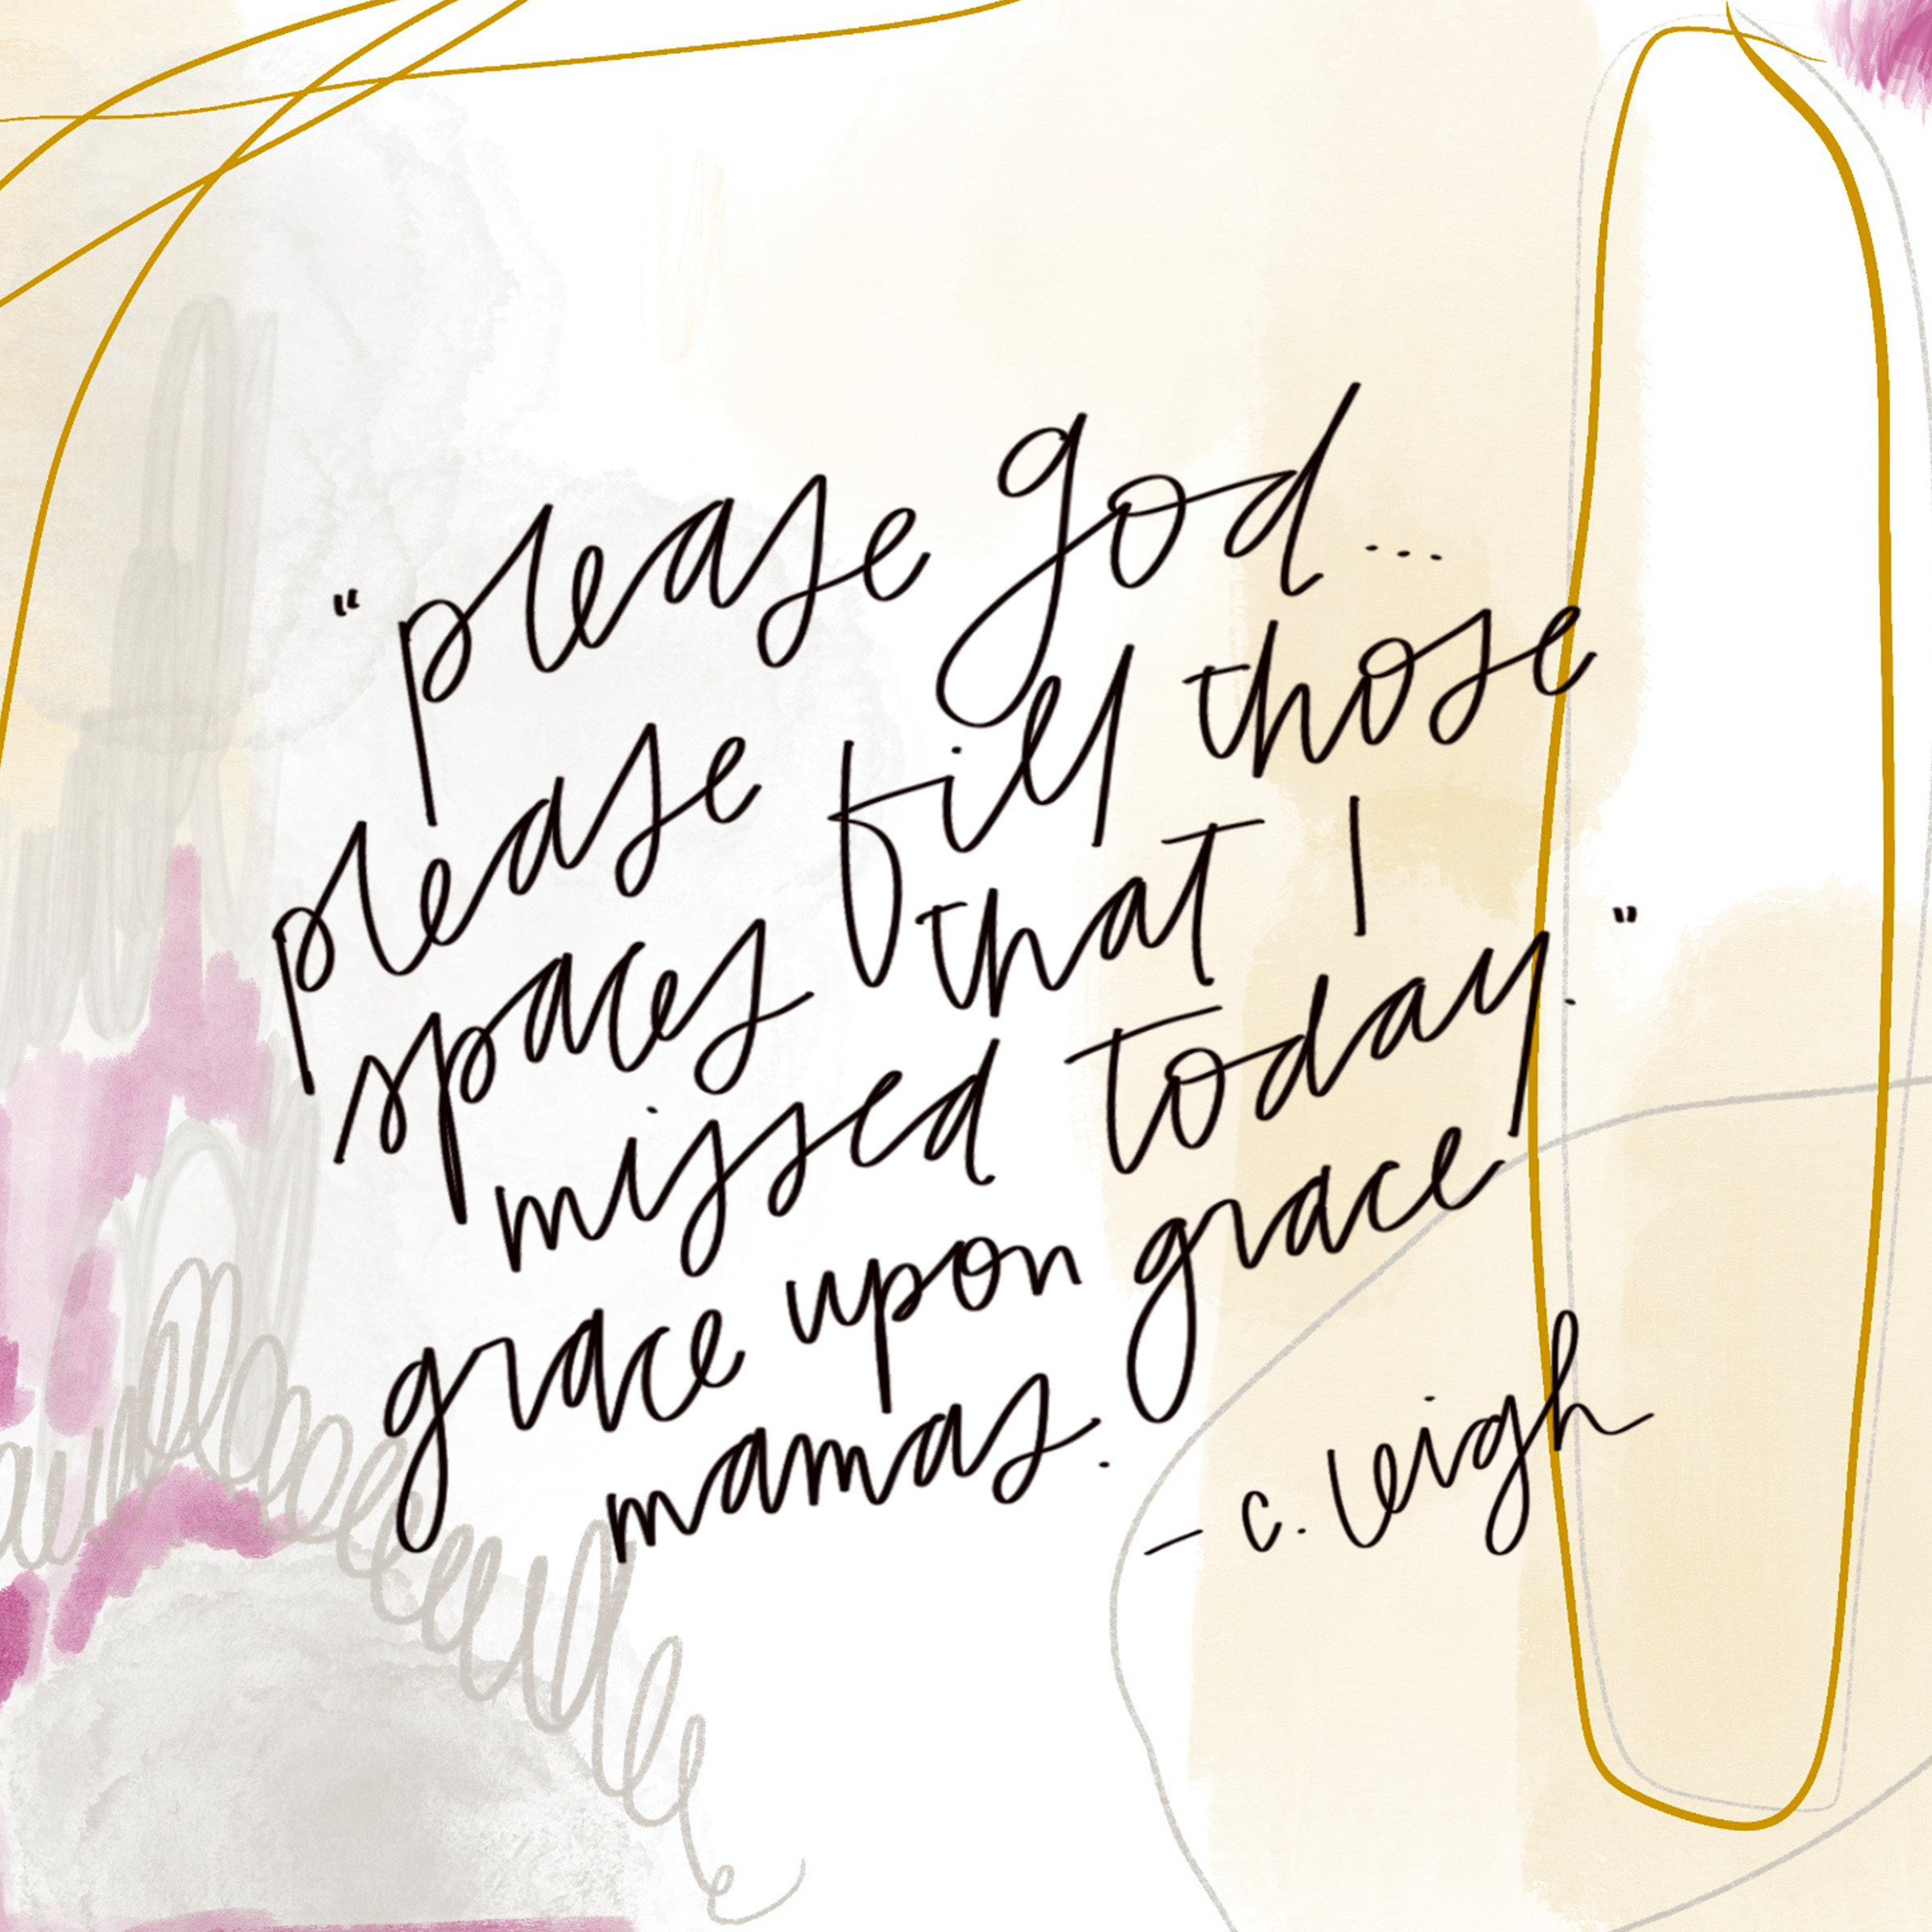 "please god...
please fill those
spaces that I
missed today."
grace upon grace
mamas.
- c. leigh